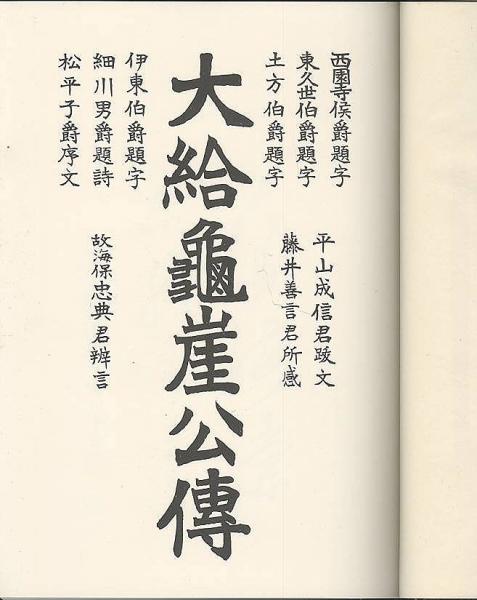 西園寺侯爵題字
東久世伯爵題字
土方伯爵題字
平山成信君跋文
藤井善言君所感
大給龜崖公傳
伊東伯爵題字
細川男爵題詩
松平子爵序文
故海保忠典君辨言